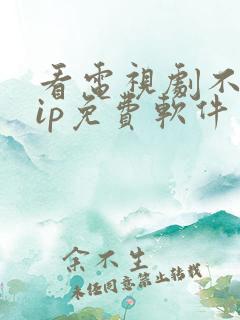 看電視劇不
ip免費軟件
余不生
未經同意禁止轉載